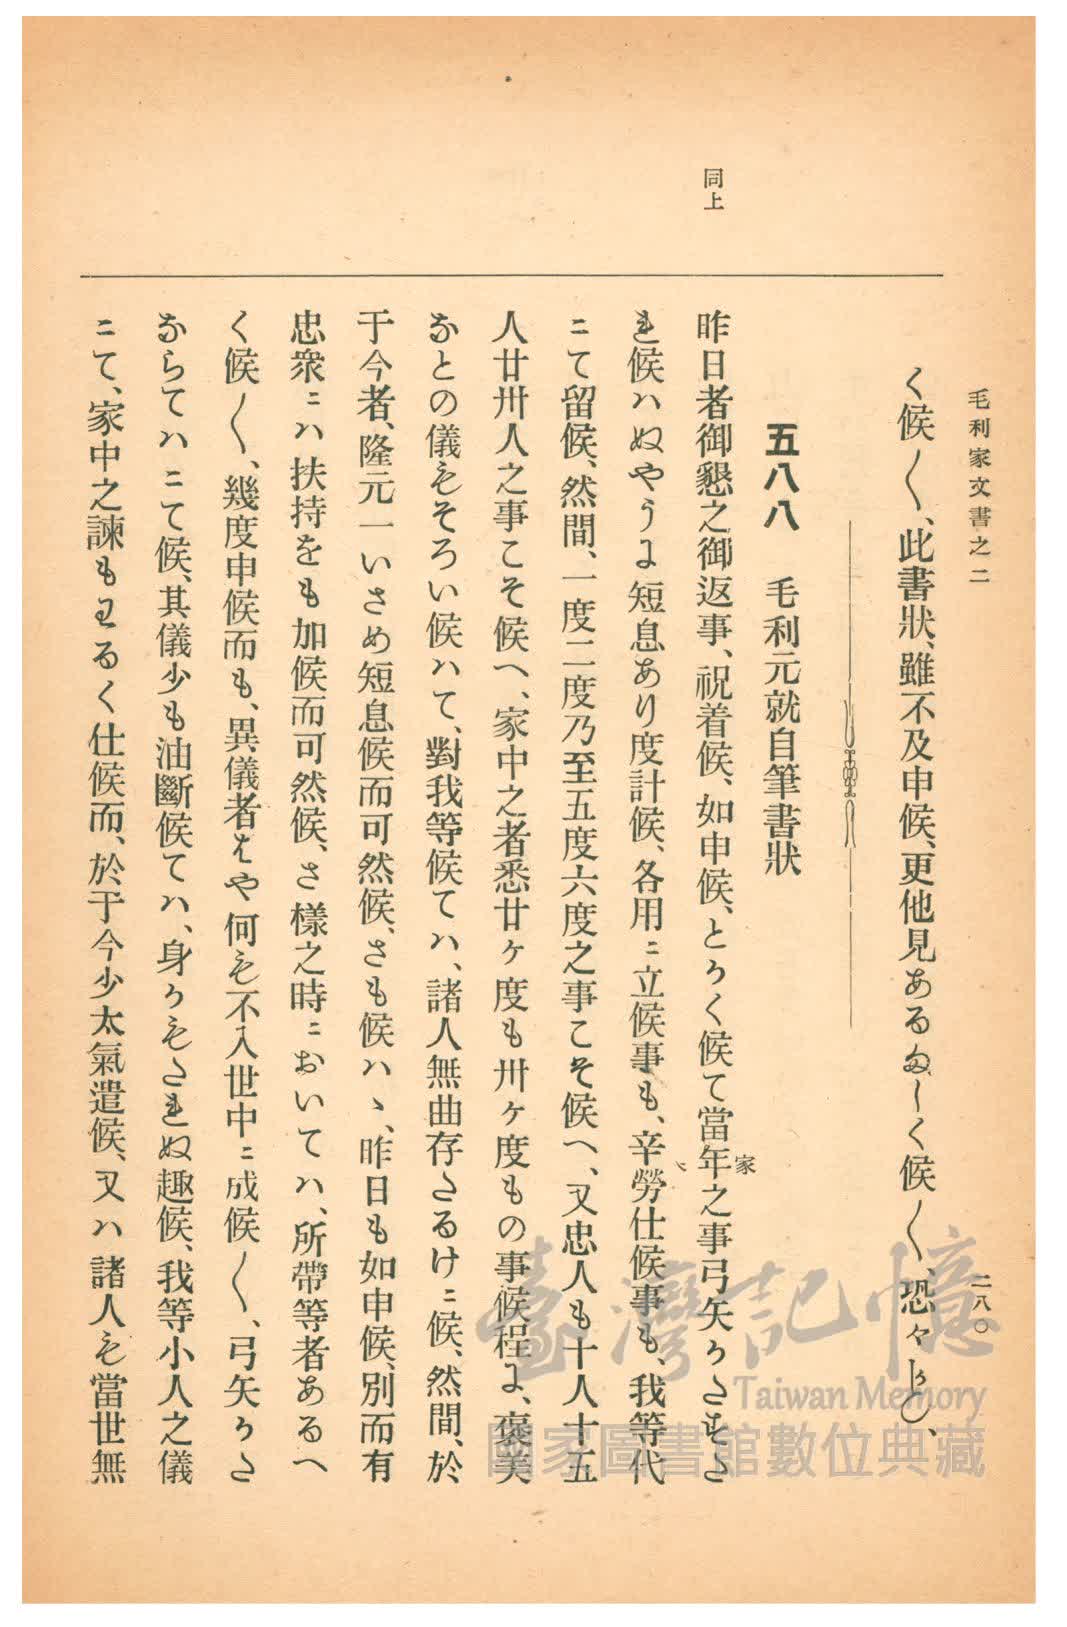 毛利家文書之二
二八〇
く候〱、此書狀、雖不及申候、更他見あるましく候〱、恐々かしく、
五八八　毛利元就自筆書狀
同上
昨日者御懇之御返事、祝着候、如申候、とかく候て當年之事弓矢かたすた
家
れ候ハぬやうよ短息あり度計候、各用ニ立候事も、辛勞仕候事も、我等代
ニて留候、然間、一度二度乃至五度六度之事こそ候へ、又忠人も十人十五
人廿卅人之事こそ候へ、家中之者悉廿ケ度も卅ケ度もの事候程よ、褒美
なとの儀もそろい候ハて、對我等候てハ、諸人無曲存たるけニ候、然間、於
于今者、隆元一いさめ短息候而可然候、さも候ハヽ、昨日も如申候、別而有
忠衆ニハ扶持をも加候而可然候、さ樣之時ニおいてハ、所帶等者あるへ
く候〱、幾度申候而も、異儀者はや何も不入世中ニ成候〱、弓矢かた
ならてハニて候、其儀少も油斷候てハ、身かもたれぬ趣候、我等小人之儀
ニて、家中之諫もわるく仕候而、於于今少太氣遣候、又ハ諸人も當世無
臺灣記憶
Taiwan Memory
國家圖書館數位典藏